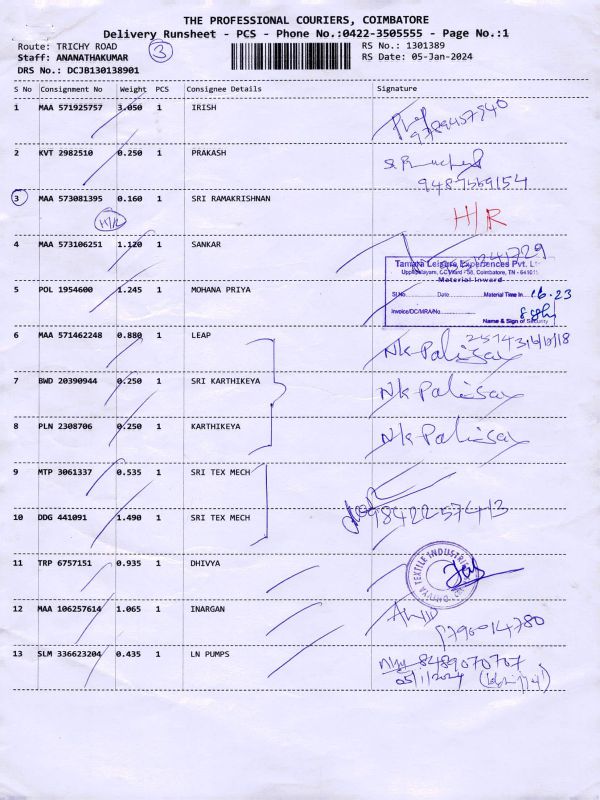 THE PROFESSIONAL COURIERS, COIMBATORE
Delivery Runsheet - PCS - Phone No.:0422-3505555 - Page No.:1
Route: TRICHY ROAD
Staff: ANANATHAKUMAR
DRS No.: DCJB130138901
3
RS No.: 1301389
RS Date: 05-Jan-2024
S No Consignment No Weight PCS Consignee Details Signature
1 MAA 571925757 3.050 1 IRISH
9789457940
2 KVT 2982510 0.250 1 PRAKASH
9487569154
3 MAA 573081395 0.160 1 SRI RAMAKRISHNAN
H/R H/R
4 MAA 573106251 1.120 1 SANKAR
Tamara Leisure Experiences Pvt. Lt
Uppilipalayam, CC Ward - 58, Coimbatore, TN - 641015
Material Inward
5 POL 1954600 1.245 1 MOHANA PRIYA
Sl.No. Date Material Time In 16.23
Invoice/DC/MRA/No
Name & Sign of Security
6 MAA 571462248 0.880 1 LEAP
Nk-Palisay
7 BWD 20390944 0.250 1 SRI KARTHIKEYA
Nk-Palisay
8 PLN 2308706 0.250 1 KARTHIKEYA
Nk-Palisay
9 MTP 3061337 0.535 1 SRI TEX MECH
9842257413
10 DDG 441091 1.490 1 SRI TEX MECH
11 TRP 6757151 0.935 1 DHIVYA
DHIVYA TEXTILE INDUSTRI
12 MAA 106257614 1.065 1 INARGAN
13 SLM 336623204 0.435 1 LN PUMPS
8489070707
05/1/2024